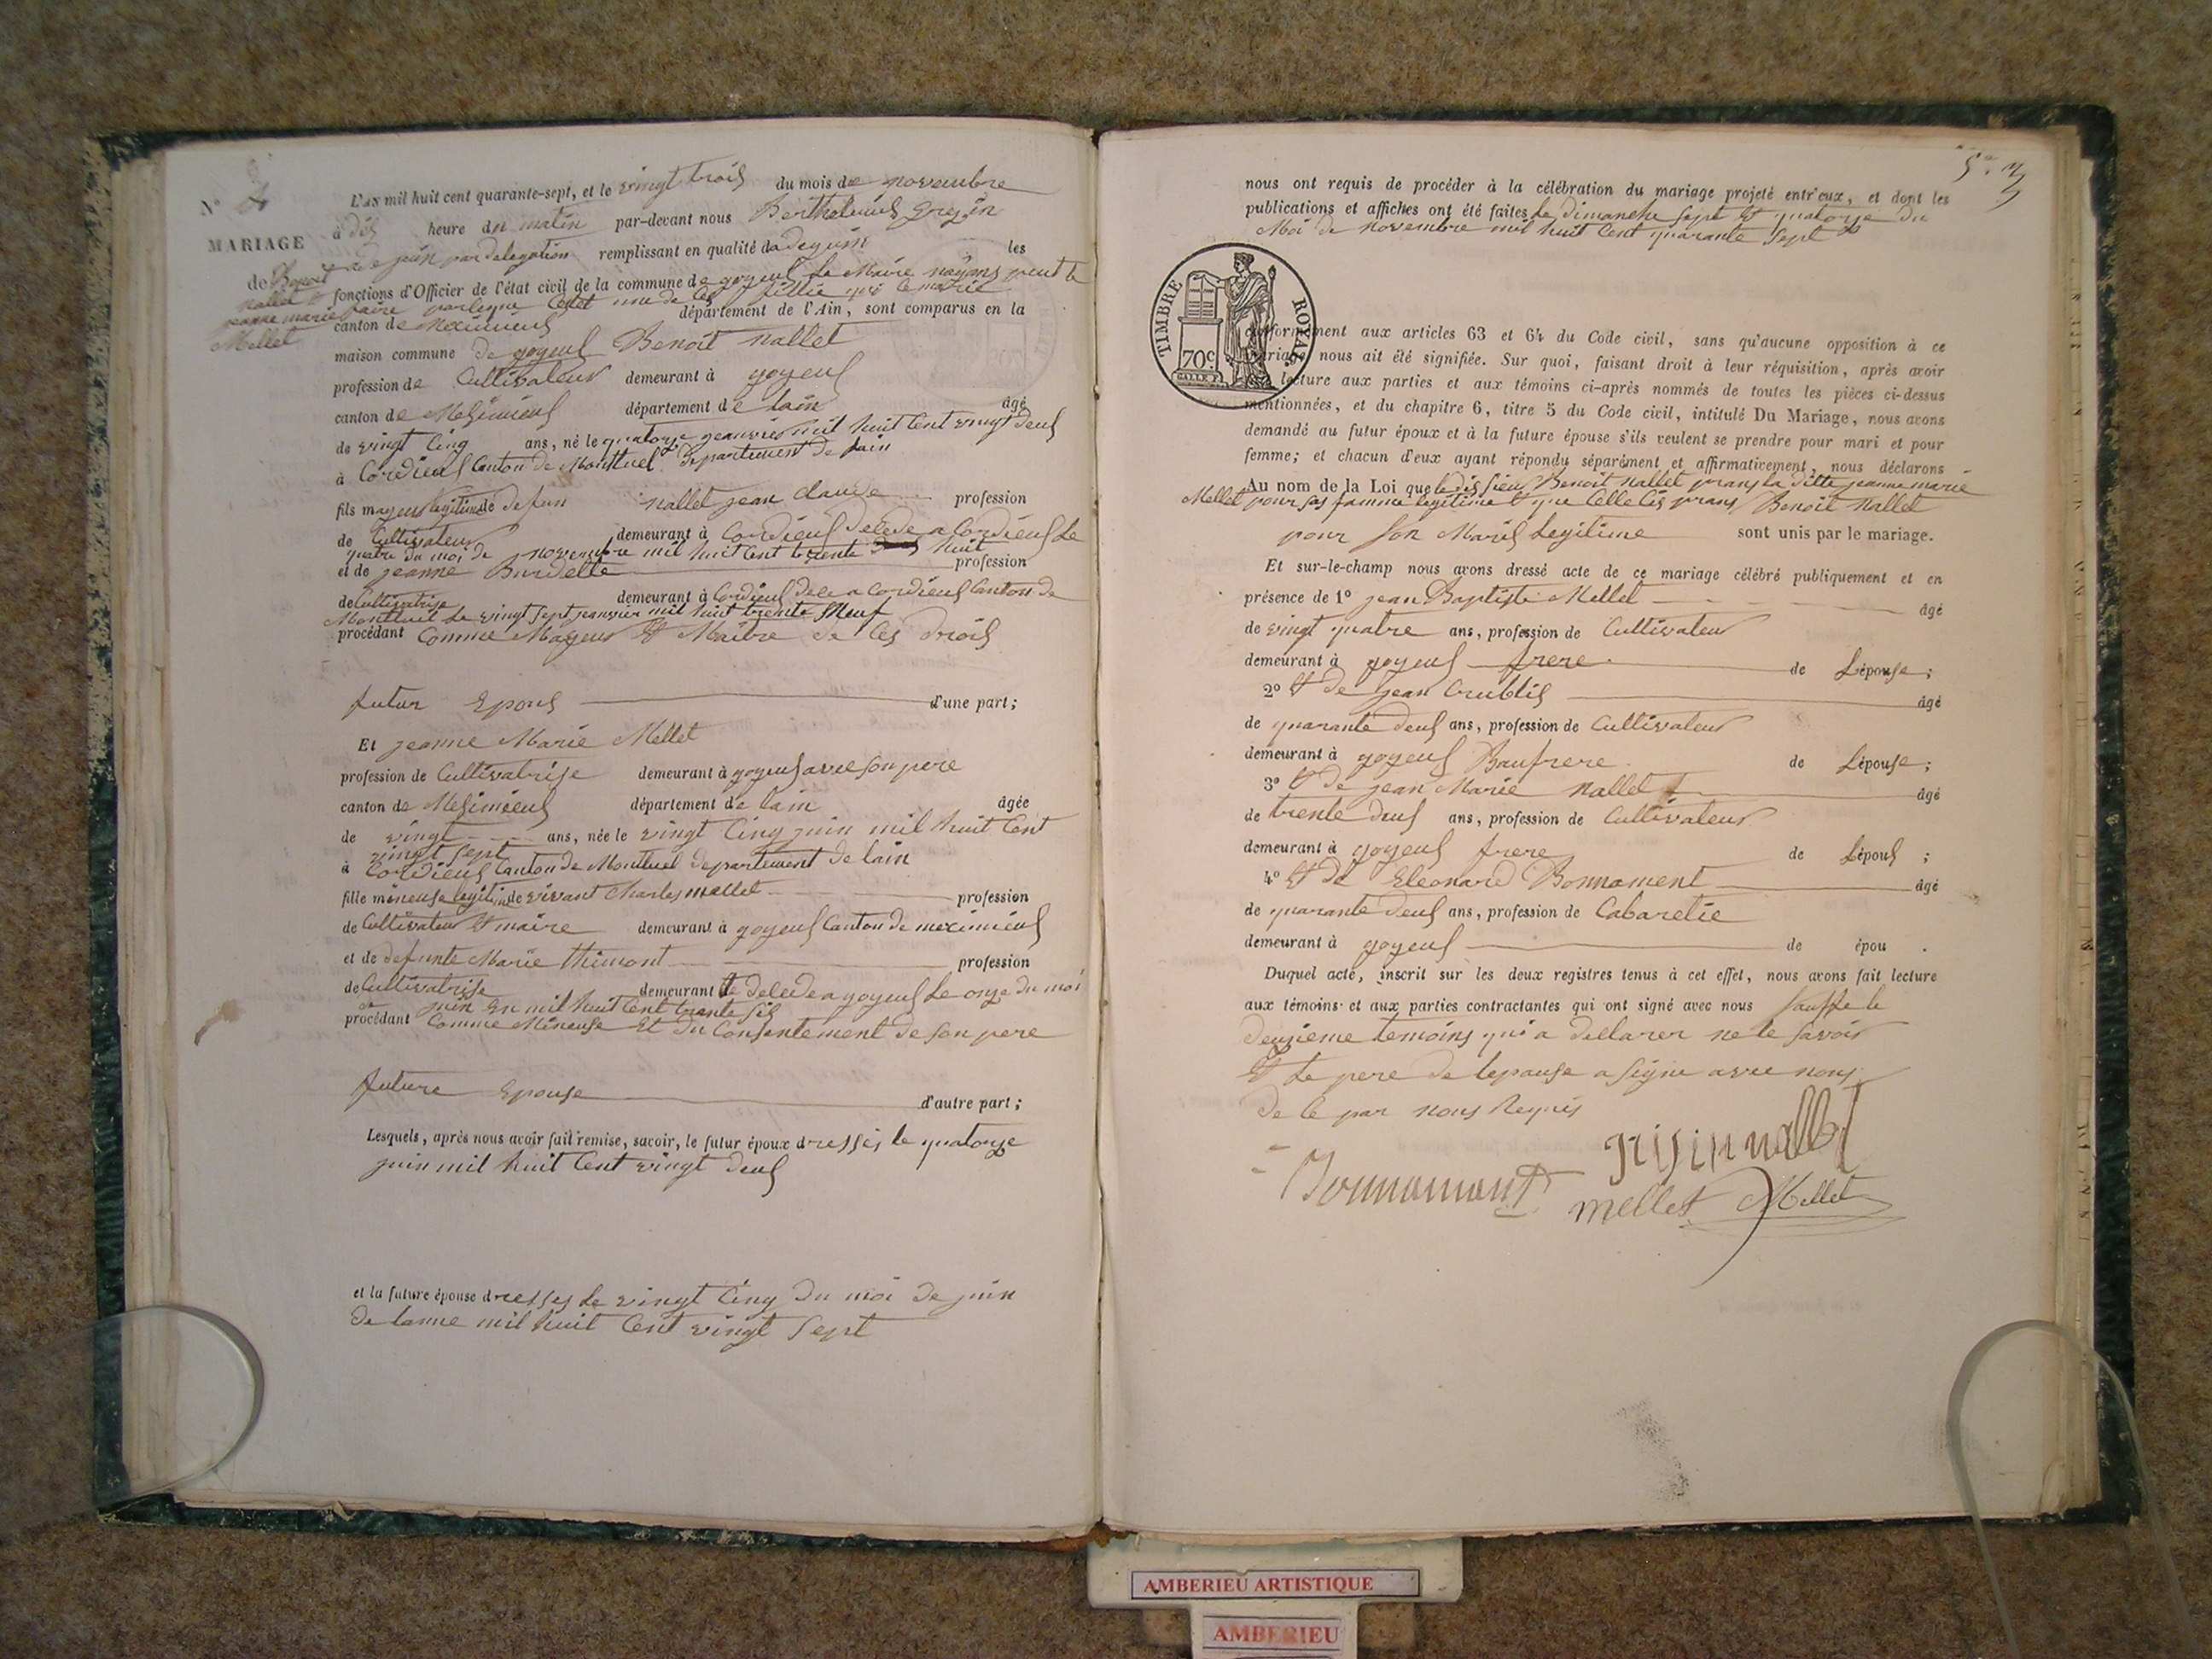 N° 4
MARIAGE
de Benoit
nallet &
jeanne marie
Mellet
L'an mil huit cent quarante-sept, et le vingt trois du mois de novembre
à dix heure du matin par-devant nous Berthelmis
par delegation remplissant en qualité d les
fonctions d'Officier de l'état civil de la commune de joyeus Le Maire
faire
canton de meximieus département de l'Ain, sont comparus en la
maison commune de joyeus Benoit nallet
profession de Cultivateur demeurant à joyeus
canton de Mesimieus département de lain âgé
de vingt Cinq ans, né le quatorze mil huit Cent vingt deus
à Cordieus Canton de Montluel Departement de lain
fils mageur legitime de defun nallet jean claude profession
de Cultivateur demeurant à Cordieus Decede a Cordieus Le
quatre du moi de novembre mil huit Cent trente huit
et de jeanne Burdelle profession
de Cultivatrise demeurant à Cordieus Decea Cordieus Canton de
Montluel Le vingt Sept janvier mil huit trente Neuf
procédant Comme Mageur Et Maitre de Ces drois
futur Epous d'une part;
Et jeanne Marie Mellet
profession de Cultivatrise demeurant à joyeus avec son pere
canton de Mesimieus département de lain âgée
de vingt ans, née le vingt Cinq juin mil huit Cent
vingt sept
à Cordieus Canton de Montluel departement de lain
fille mineuse legitime de vivant Charles mellet profession
de Cultivateur & maire demeurant à joyeus Canton de meximieus
et de defunte Marie thimont profession
de Cultivatrise demeurant Decede a joyeus Le onze du moi
de juin En mil huit Cent trente sis
procédant Comme Mineuse Et du Consentement de son pere
future Epouse d'autre part;
Lesquels, après nous avoir fait remise, savoir, le futur époux dresses le quatorze
juin mil huit Cent vingt deus
et la future épouse dresses le vingt Cinq du moi de juin
de lanne mil huit Cent vingt Sept
nous ont requis de procéder à la célébration du mariage projeté entr'eux, et dont les
publications et affiches ont été faites le dimanche sept Et quatorze du
Moi de novembre mil huit Cent quarante Sept
TIMBRE ROYAL
70c.
conformément aux articles 63 et 64 du Code civil, sans qu'aucune opposition à ce
mariage nous ait été signifiée. Sur quoi, faisant droit à leur réquisition, après avoir
lecture aux parties et aux témoins ci-après nommés de toutes les pièces ci-dessus
mentionnées, et du chapitre 6, titre 5 du Code civil, intitulé Du Mariage, nous avons
demandé au futur époux et à la future épouse s'ils veulent se prendre pour mari et pour
femme; et chacun d'eux ayant répondu séparément et affirmativement, nous déclarons
Au nom de la Loi que Benoit nallet prans la ditte jeanne marie
Mellet pour sas famme legitime & que Celle Cis prans Benoit Nallet
pour son Maris Legitime sont unis par le mariage.
Et sur-le-champ nous avons dressé acte de ce mariage célébré publiquement et en
présence de 1° jean Baptiste Mellet âgé
de vingt quatre ans, profession de Cultivateur
demeurant à joyeus frere de Lépouse;
2° & de jean Crublis âgé
de quarante deus ans, profession de Cultivateur
demeurant à joyeus Baufrere de Lépouse;
3° & de jean Marie nallet âgé
de trente deus ans, profession de Cultivateur
demeurant à joyeus frere de Lépous ;
4° & de Eleonard Bonnament âgé
de quarante deus ans, profession de Cabaretie
demeurant à joyeus de épou .
Duquel acte, inscrit sur les deux registres tenus à cet effet, nous avons fait lecture
aux témoins et aux parties contractantes qui ont signé avec nous sauffe le
deuxieme temoins qui a dellarer ne le savoir
& Le pere de lepause a signe avec nous
de Ce par nous Requis
nallet
Bonnamant mellet Mellet
AMBERIEU ARTISTIQUE
AMBERIEU